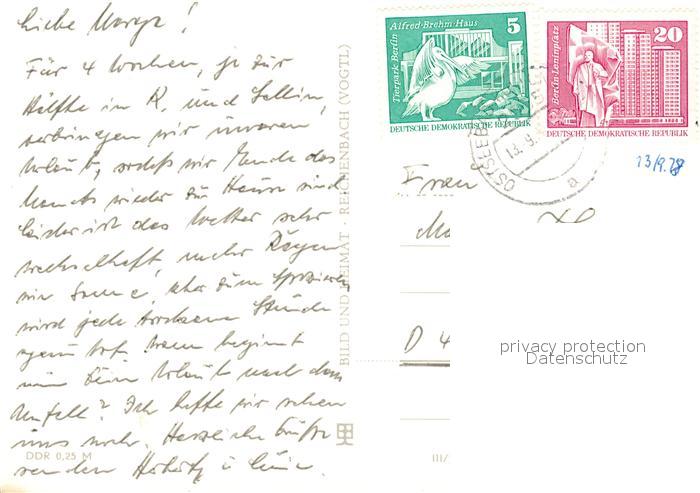 Liebe
Für 4 Wochen, je zur
Hälfte in K. und Sellin,
verbringen wir unseren
Urlaub, sodaß wir Ende des
Monats wieder zu Hause sind.
Leider ist das Wetter sehr
wechselhaft, mehr Regen
wie Sonne, aber zum
wird jede trockene Stunde
genutzt. Wann beginnt
nun Dein Urlaub nach dem
Unfall? Ich hoffe wir sehen
uns noch. Herzliche Grüße
senden
DDR 0,25 M
BILD UND HEIMAT REICHENBACH (VOGTL)
III/
Alfred-Brehm-Haus
5
Tierpark Berlin
DEUTSCHE DEMOKRATISCHE REPUBLIK
20
Berlin-Leninplatz
DEUTSCHE DEMOKRATISCHE REPUBLIK
OSTSEEB
13.9.
a
13/9.78
Frau
D 4
privacy protection
Datenschutz